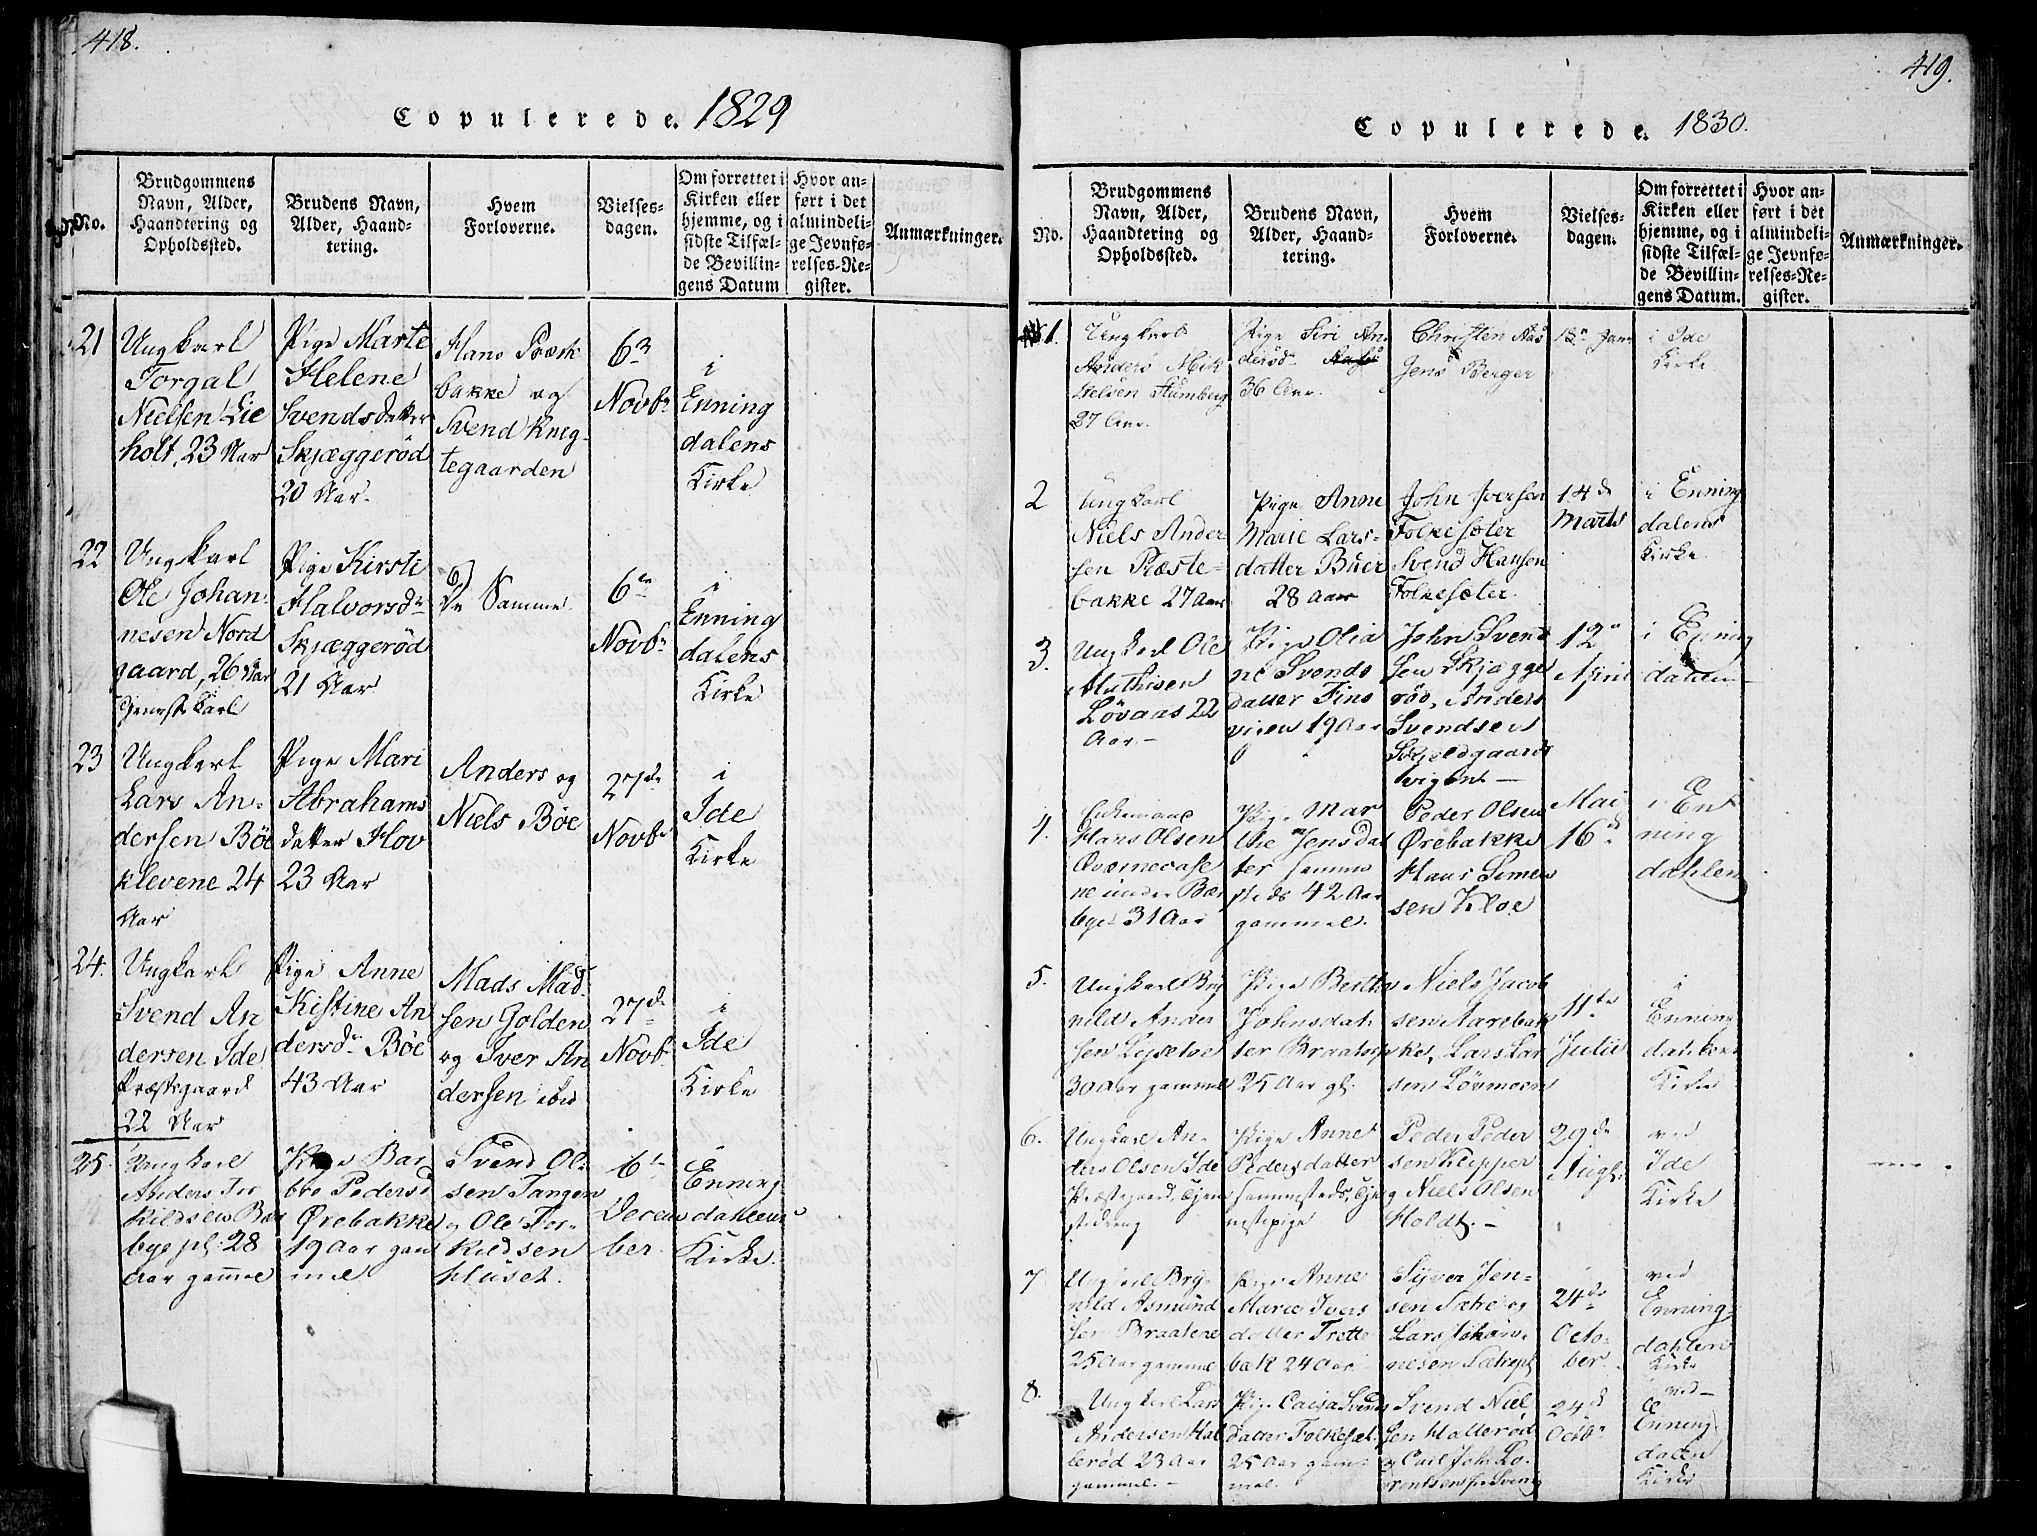 418.
Copulerede. 1829
No.
Brudgommens
Navn, Alder,
Haandtering og
Opholdssted.
Brudens Navn,
Alder, Haand-
tering.
Hvem
Forloverne.
Vielses-
dagen.
Om forrettet i
Kirken eller
hjemme, og i
sidste Tilfæl-
de Bevillin-
gens Datum
Hvor an-
ført i det
almindeli-
ge Jevnfø-
relses-Re-
gister.
Anmærkninger.
21
Ungkarl
Torgal
Nielsen Lie
holt, 23 Aar
Pige Marte
Helene
Svendsdatter
Skjæggerød
20 Aar.
Hans Præste
bakke og
Svend Kneg-
tegaarden
6
Novbr
i
Enning
dalens
Kirke
22
Ungkarl
Ole Johan
nesen Nord
gaard, 26 Aar
Tjeneste Karl
Pige Kirsti
Halvorsdr
Skjæggerød
21 Aar
De Samme
6te
Novbr
i
Enning
dalens
Kirke
23
Ungkarl
Lars An-
dersen Böe
klevene 24
Aar
Pige Mari
Abrahams
datter Hov
23 Aar
Anders og
Niels Böe
27de
Novbr
i
Ide
Kirke
24.
Ungkarl
Svend An
dersen Ide
Præstegaard
22 Aar
Pige Anne
Kistine An
dersdr Böe
43 Aar
Mads Mad-
sen Golden
og Iver An
dersen ibid
27de
Novbr
i
Ide
Kirke
25.
Ungkarl
Anders Tor
kildsen Bær
bye pl: 28
Aar gamle
Pige Bar
bro Pedersd
Ørebakke
19 Aar gam
mel
Svend Ol-
sen Tangen
og Ole Tor-
kildsen
Huset.
6te
Decem
ber.
i
Enning
dahlens
Kirke.
419.
Copulerede. 1830.
No.
Brudgommens
Navn, Alder,
Haandtering og
Opholdssted.
Brudens Navn,
Alder, Haand-
tering.
Hvem
Forloverne.
Vielses-
dagen.
Om forrettet i
Kirken eller
hjemme, og i
sidste Tilfæl-
de Bevillin-
gens Datum.
Hvor an-
ført i det
almindeli-
ge Jevnfø-
relses-Re-
gister.
Anmærkninger.
1.
Ungkarl
Anders Mik
kelsen Humberg
27 Aar.
Pige Siri An
dersdr
36 Aar.
Christen Aas
Jens Berger
Janu
i Ide
Kirke
2
Ungkarl
Niels Ander
sen Præste-
bakke 27 Aar
Pige Anne
Marie Lars-
datter Buer
28 Aar
John Iversen
Folkesæter
Svend Hansen
Folkesæter.
14de
Marts
i Enning
dalens
Kirke.
3.
Ungkarl Ole
Mathisen
Løvaas 22
Aar.-
Pige Olia
ne Svends
datter Fins
vigen 19 Aar
John Svend
sen Skjægge
rød, Anders
Svendsen
Skjeldgaards
vigen.-
12
April
i Enning
dahlen
4.
Enkemand
Hans Olsen
Qværnecase
ne under Bær
bye 31 Aar
Pige Mar
the Jensdat
ter samme
steds 42 Aar
gammel.
Peder Olsen
Ørebakke
Hans Simen
sen Kloe
Mai
16de
i En
ning
dahlen
5.
Ungkarl Bry
nild Ander
sen
30 Aar gammel
Pige Berthe
Johnsdat
ter Braatene
25 Aar gl.
Niels Jacob
sen Aarebak
ke, Lars Lar
sen Løvmoen
11te
Julii
i
Enning
dahlens
Kirke
6.
Ungkarl An-
ders Olsen Ide
Præstegaard, Tjene
stedreng
Pige Anne
Pedersdatter
sammesteds, Tje
nestepige
Peder Peder
sen Klepper
og Niels Olsen
Holdt.-
29de
Augt:
ved
Ide
Kirke
7
Ungkarl Bry-
nild Asmund
sen Braatene
25 Aar gammel
Pige Anne
Marie Ivers
datter Trotte
bak 24 Aar
Syver Jen-
sen Sæther og
Lars Johan-
nesen Sæterpl
24de
Octo-
ber
ved
Enning-
dahlen
Kirke
8.
Ungkarl Lars
Andersen Hal
lerød 23 Aar
gammel.-
Pige Caisa Svens
datter Folkesæt.
25 Aar gam
mel.
Svend Niel
sen Hallerød
og Carl Joh. Lo-
rentsen
24de
Octbr
ved-
Enning-
dalen
Kirke